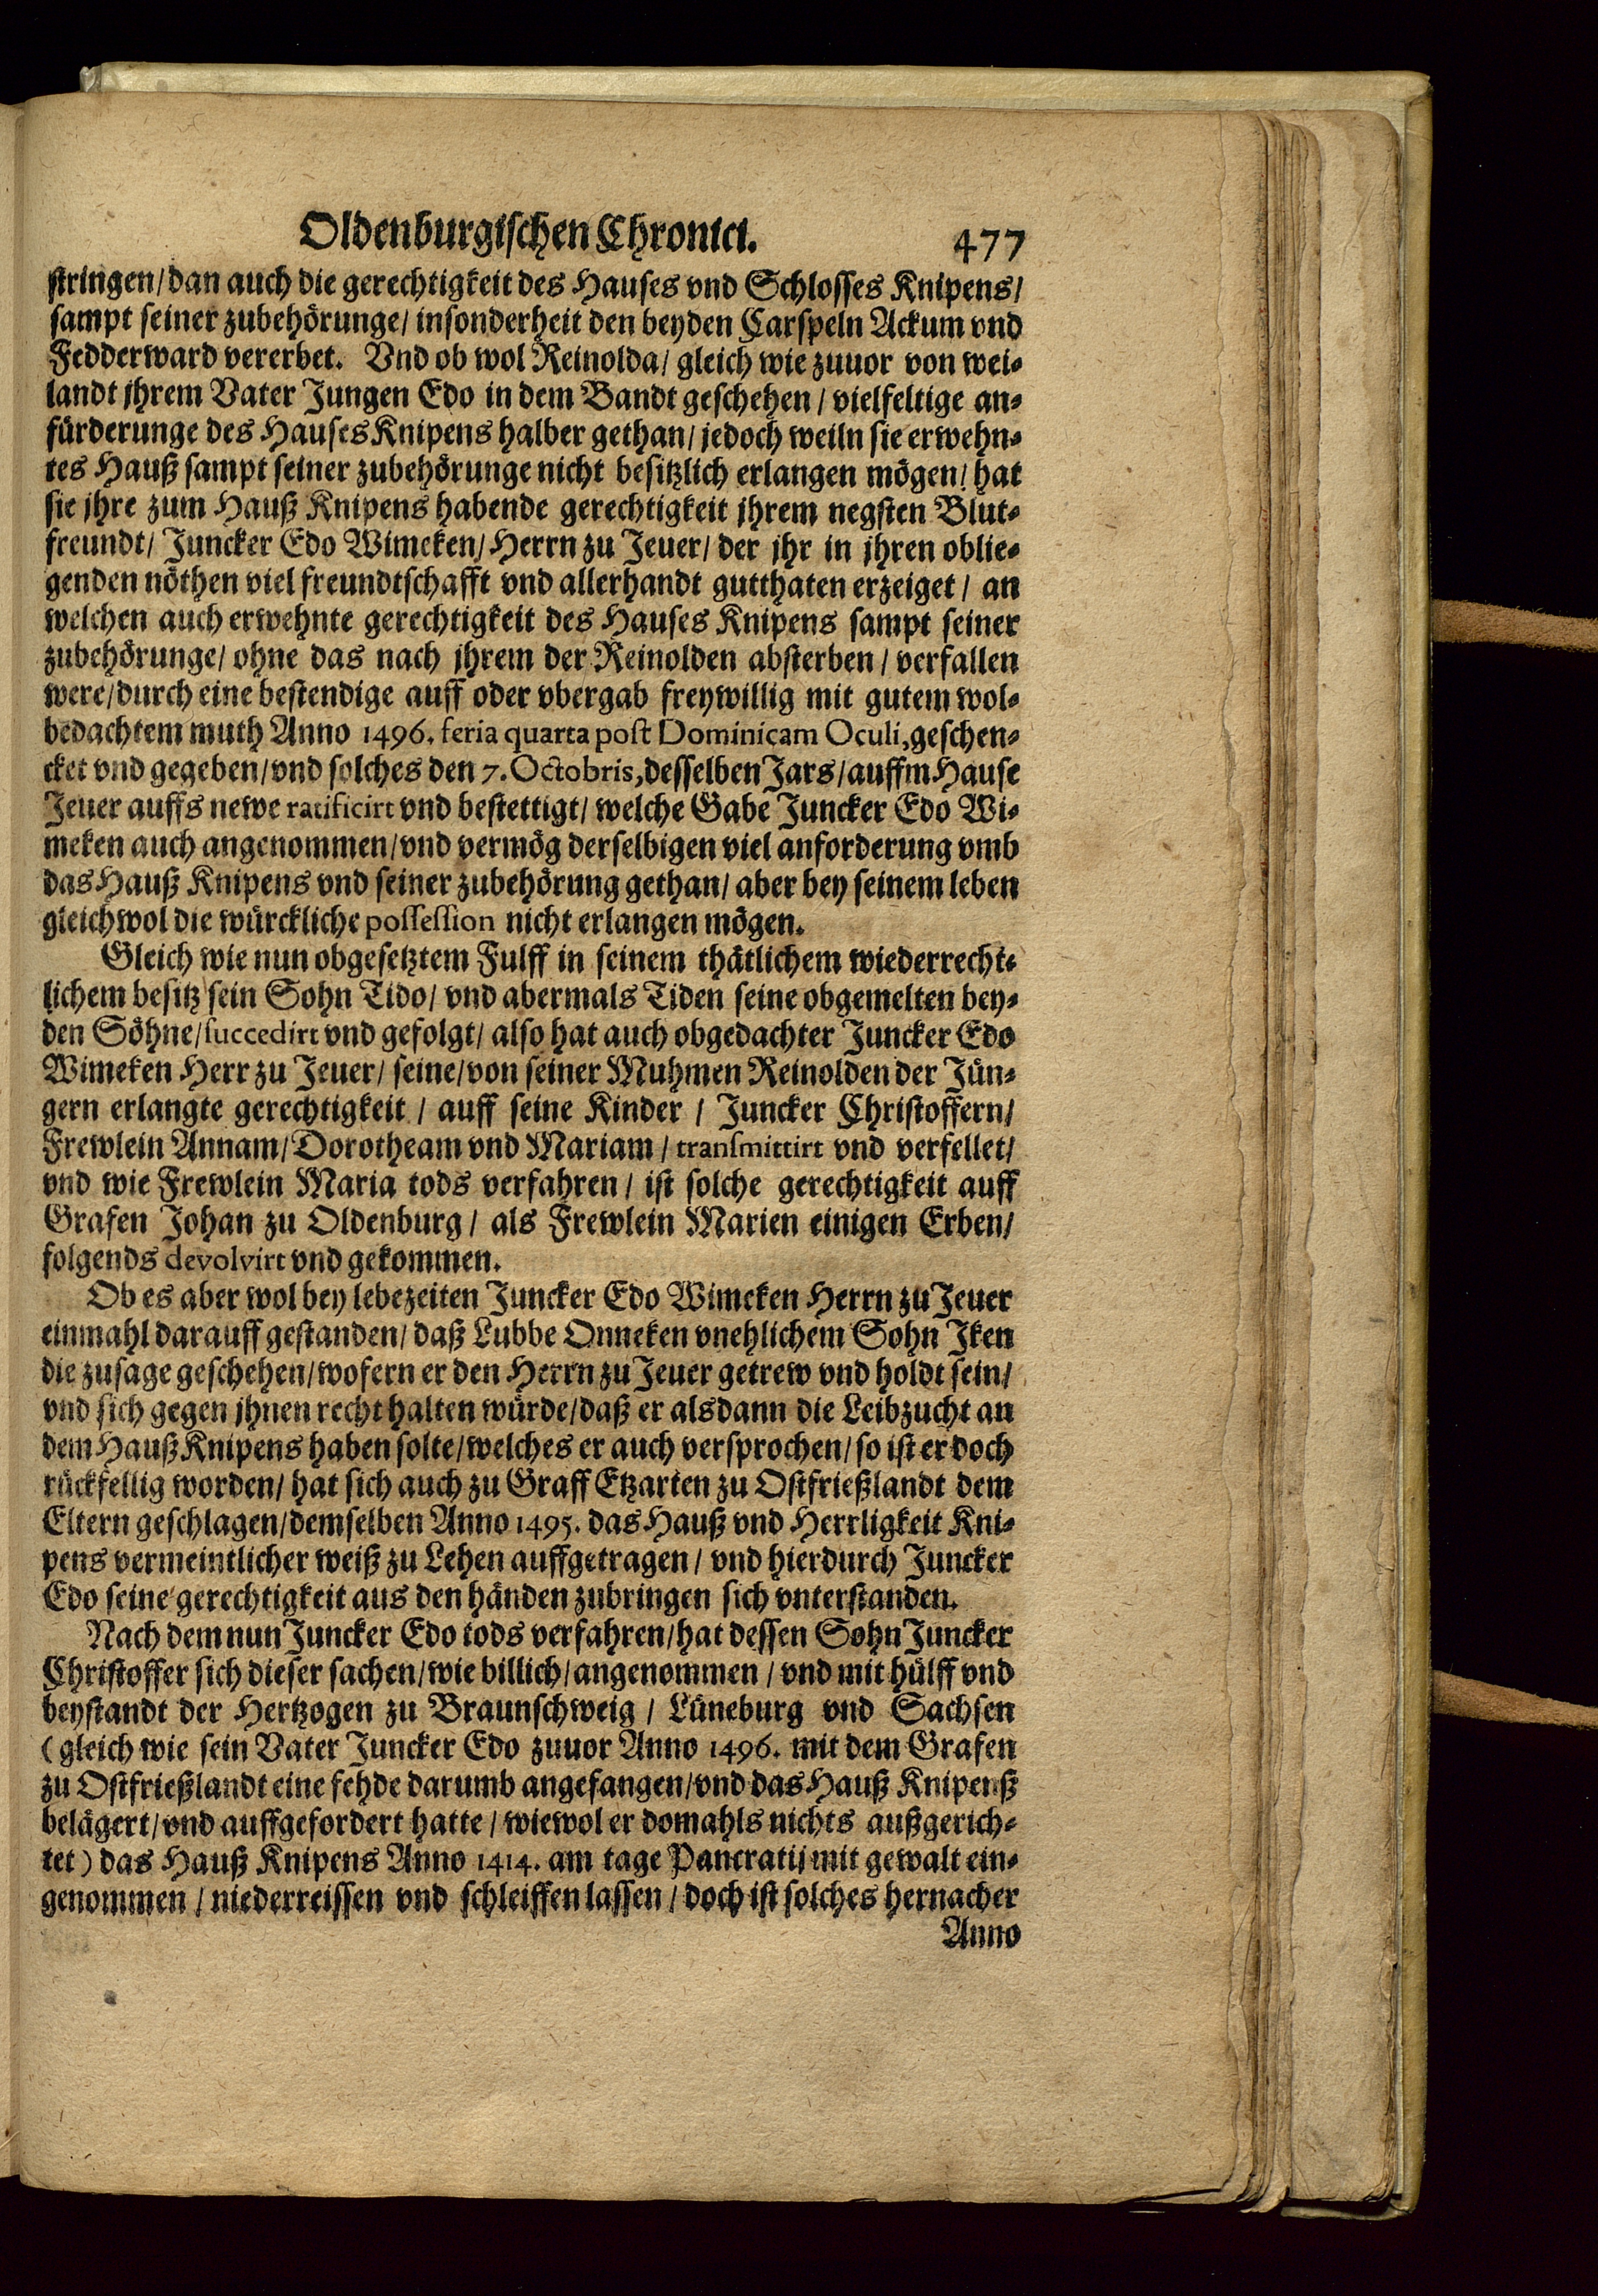 Oldenburgischen Chronici. 477
stringen/ dan auch die gerechtigkeit des Hauses vnd Schlosses Knipens/
sampt seiner zubehörunge/ insonderheit den beyden Carspeln Ackum vnd
Fedderward vererbet. Vnd ob wol Reinolda/ gleich wie zuuor von wei-
landt jhrem Vater Jungen Edo in dem Bandt geschehen/ vielfeltige an-
fürderunge des Hauses Knipens halber gethan/ jedoch weiln sie erwehn-
tes Hauß sampt seiner zubehörunge nicht besitzlich erlangen mögen/ hat
sie jhre zum Hauß Knipens habende gerechtigkeit jhrem negsten Blut-
freundt/ Juncker Edo Wimeken/ Herrn zu Jeuer/ der jhr in jhren oblie-
genden nöthen viel freundtschafft vnd allerhandt gutthaten erzeiget/ an
welchen auch erwehnte gerechtigkeit des Hauses Knipens sampt seiner
zubehörunge/ ohne das nach jhrem der Reinolden absterben/ verfallen
were/ durch eine bestendige auff oder vbergab freywillig mit gutem wol-
bedachtem muth Anno 1496. feria quarta post Dominicam Oculi, geschen-
cket vnd gegeben/ vnd solches den 7. Octobris, desselben Jars/ auffm Hause
Jeuer auffs newe ratificirt vnd bestettigt/ welche Gabe Juncker Edo Wi-
meken auch angenommen/ vnd vermög derselbigen viel anforderung vmb
das Hauß Knipens vnd seiner zubehörung gethan/ aber bey seinem leben
gleichwol die würckliche possession nicht erlangen mögen.
Gleich wie nun obgesetztem Fulff in seinem thätlichem wiederrecht-
lichem besitz sein Sohn Tido/ vnd abermals Tiden seine obgemelten bey-
den Söhne/ succedirt vnd gefolgt/ also hat auch obgedachter Juncker Edo
Wimeken Herr zu Jeuer/ seine/ von seiner Muhmen Reinolden der Jün-
gern erlangte gerechtigkeit/ auff seine Kinder/ Juncker Christoffern/
Frewlein Annam/ Dorotheam vnd Mariam/ transmittirt vnd verfellet/
vnd wie Frewlein Maria tods verfahren/ ist solche gerechtigkeit auff
Grafen Johan zu Oldenburg/ als Frewlein Marien einigen Erben/
folgends devolvirt vnd gekommen.
Ob es aber wol bey lebezeiten Juncker Edo Wimeken Herrn zu Jeuer
einmahl darauff gestanden/ daß Lubbe Onneken vnehlichem Sohn Iken
die zusage geschehen/ wofern er den Herrn zu Jeuer getrew vnd holdt sein/
vnd sich gegen jhnen recht halten würde/ daß er alsdann die Leibzucht an
dem Hauß Knipens haben solte/ welches er auch versprochen/ so ist er doch
rückfellig worden/ hat sich auch zu Graff Etzarten zu Ostfrießlandt dem
Eltern geschlagen/ demselben Anno 1495. das Hauß vnd Herrligkeit Kni-
pens vermeintlicher weiß zu Lehen auffgetragen/ vnd hierdurch Juncker
Edo seine gerechtigkeit aus den händen zubringen sich vnterstanden.
Nach dem nun Juncker Edo tods verfahren/ hat dessen Sohn Juncker
Christoffer sich dieser sachen/ wie billich/ angenommen/ vnd mit hülff vnd
beystandt der Hertzogen zu Braunschweig/ Lüneburg vnd Sachsen
(gleich wie sein Vater Juncker Edo zuuor Anno 1496. mit dem Grafen
zu Ostfrießlandt eine fehde darumb angefangen/ vnd das Hauß Knipenß
belägert/ vnd auffgefordert hatte/ wiewol er domahls nichts außgerich-
tet) das Hauß Knipens Anno 1414. am tage Pancratij mit gewalt ein-
genommen/ niederreissen vnd schleiffen lassen/ doch ist solches hernacher
Anno